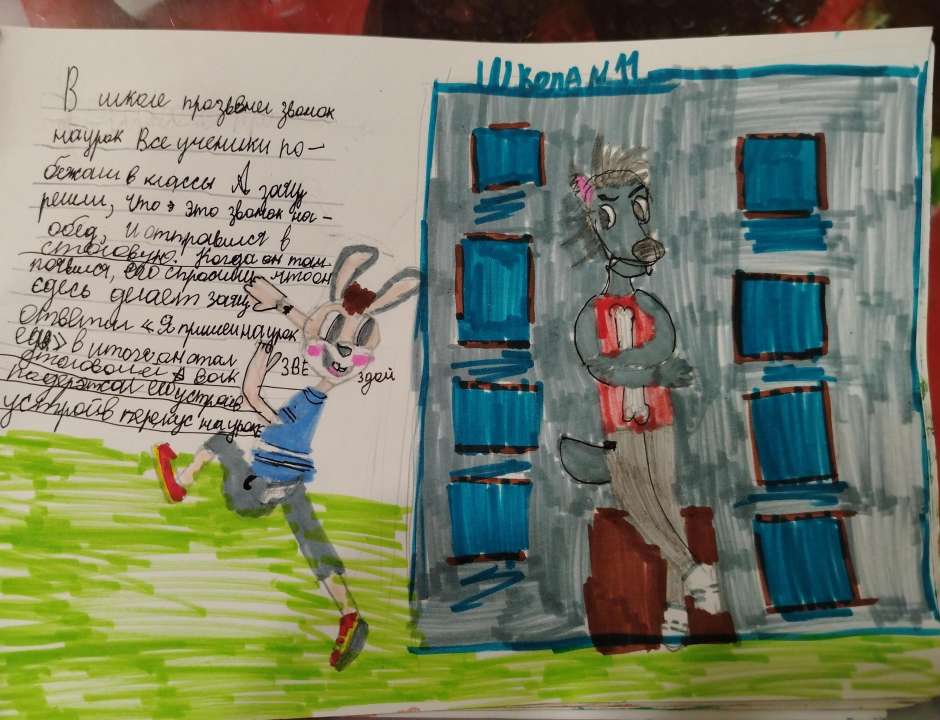 Школа N 11
В школе прозвенел звонок
на урок Все ученики по-
бежали в классы А заяц
решил, что это звонок на-
обед, и отправился в
столовую. Когда он там
появился, его спросили что он
сдесь делает заяц
ответил «Я пришел на урок
еды» в итоге он стал
столовой А волк
ЗВЕ здой
устроив перекус на уроке